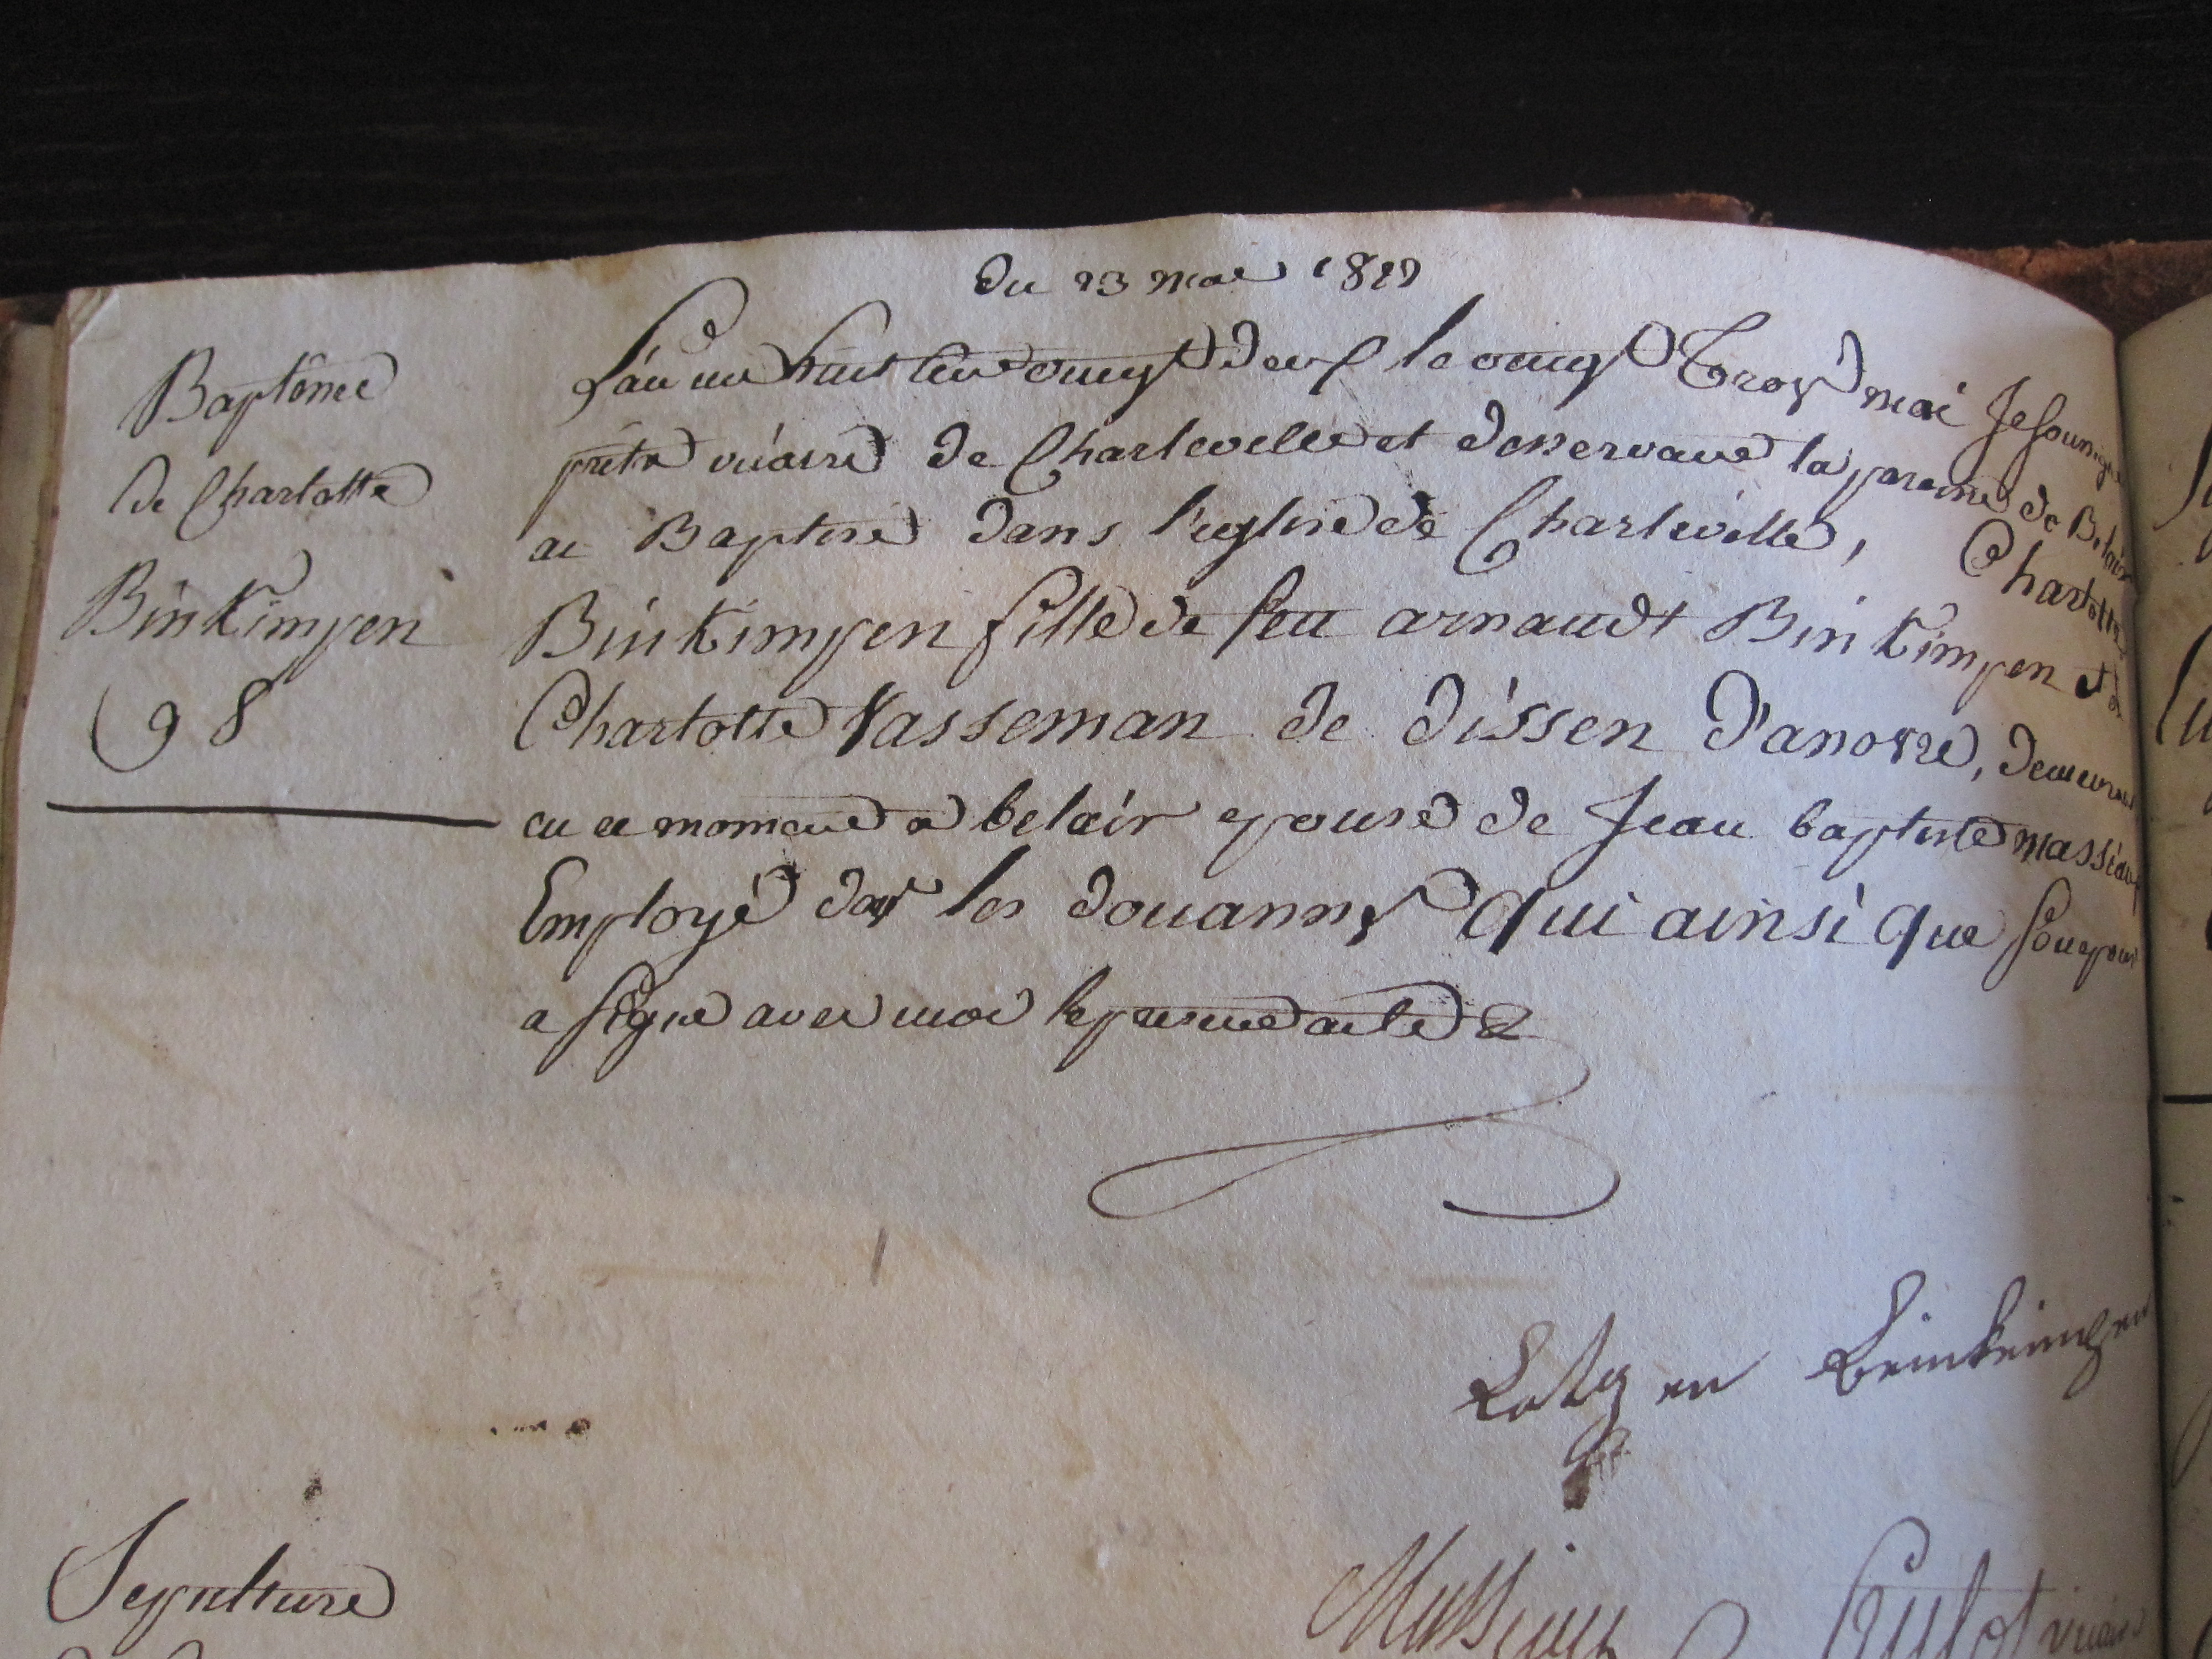 Du 23 mai 1822
Baptême
de Charlotte
Binkimpen
98
L'an mil huit cent vingt deux le vingt Trois mai Je soussigné
prêtre vicaire de Charleville et desservant la paroisse de Belair
ai Baptisé dans l'eglise de Charleville, Charlotte
Binkimpen fille de feu arnaudt Binkimpen et de
Charlotte Vasseman de Dissen D'anovre, demeurant
en ce moment a belair epouse de Jean baptiste massiaux
Employé dans les douannes qui ainsi que son epouse
a signé avec moi le present acte &
en Beinkeimpen
Massiaux
vicaire
Sepulture